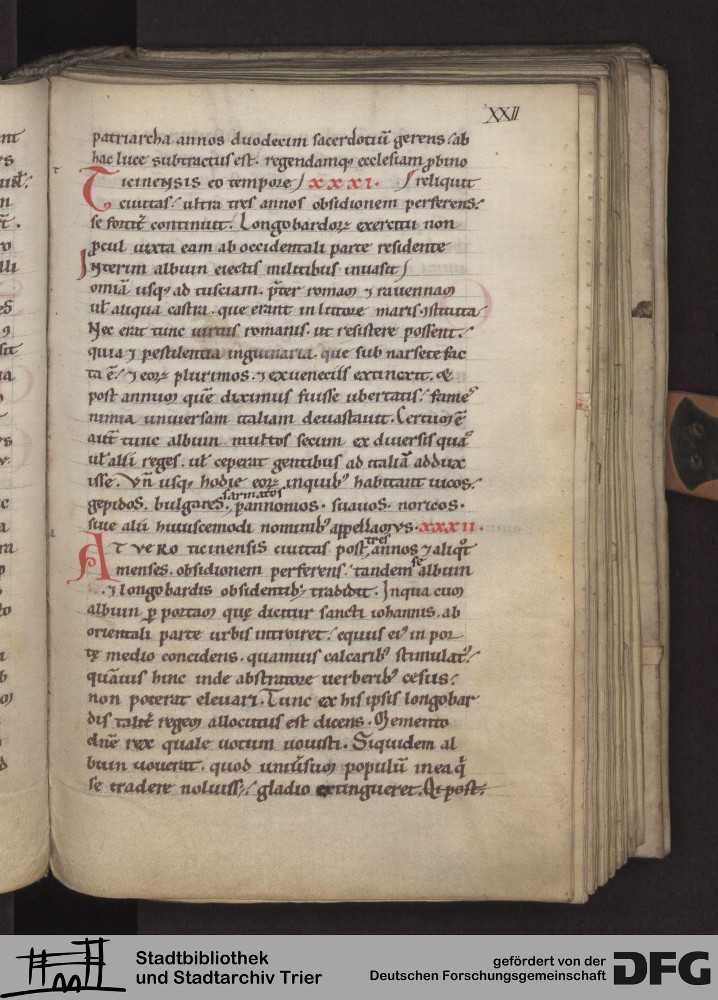 XXII
patriarcha annos duodecim sacerdotiū gerens. ab
hac luce subtractus est. regendamq; ecclesiam ꝓbino
reliquit
Ticinensis eo tempore XXXI.
ciuitas. ultra tres annos obsidionem perferens.
se fortit̄ continuit. Longobardorꝝ exercitu non
ꝓcul iuxta eam ab occidentali parte residente
Interim albuin eiectis militibus inuasit
omīa usq; ad tusciam. p̄ter romam ⁊ rauennam
ul̄ aliqua castra. que erant in littore maris 9stituta
Nec erat tunc uirtus romanis. ut resistere possent.
quia ⁊ pestilentia inguinaria. que sub narsete fac
ta ē. ⁊ eorꝝ plurimos. ⁊ ex ueneciis extinexit. &
post annum quē diximus fuisse ubertatis. fames
nimia uniuersam italiam deuastauit. Certum ē
aut̄ tunc albuin multos secum ex diuersis quas
ul̄ alii reges. ul̄ ceperat gentibus ad italiā addux
isse. Vn̄ usq; hodie eorꝝ inquib; habitant uicos.
gepidos. bulgares. sarmatos pannonios. suauos. noricos.
siue alii huiuscemodi nominib; appellamus. XXXII.
AT VERO ticinensis ciuitas post tres annos ⁊ aliq̊t
menses. obsidionem perferens. tandem se albuin
⁊ longobardis obsidentib; tradidit. In qua cum
albuin ꝑ portam quę dicitur sancti iohannis. ab
orientali parte urbis introiret. equus ei9 in por
tę medio concidens. quamuis calcarib; stimulat9.
quāuis hinc inde abstratore uerberib; cesus.
non poterat eleuari. Tunc ex his ipsis longobar
dis talit̄ regem allocutus est dicens. Memento
dn̄e rex quale uotum uouisti. Siquidem al
buin uouerat. quod uniūsum populū in ea q̄
se tradere noluiss;. gladio extingueret. Qi post.
Stadtbibliothek
und Stadtarchiv Trier
gefördert von der
Deutschen Forschungsgemeinschaft
DFG